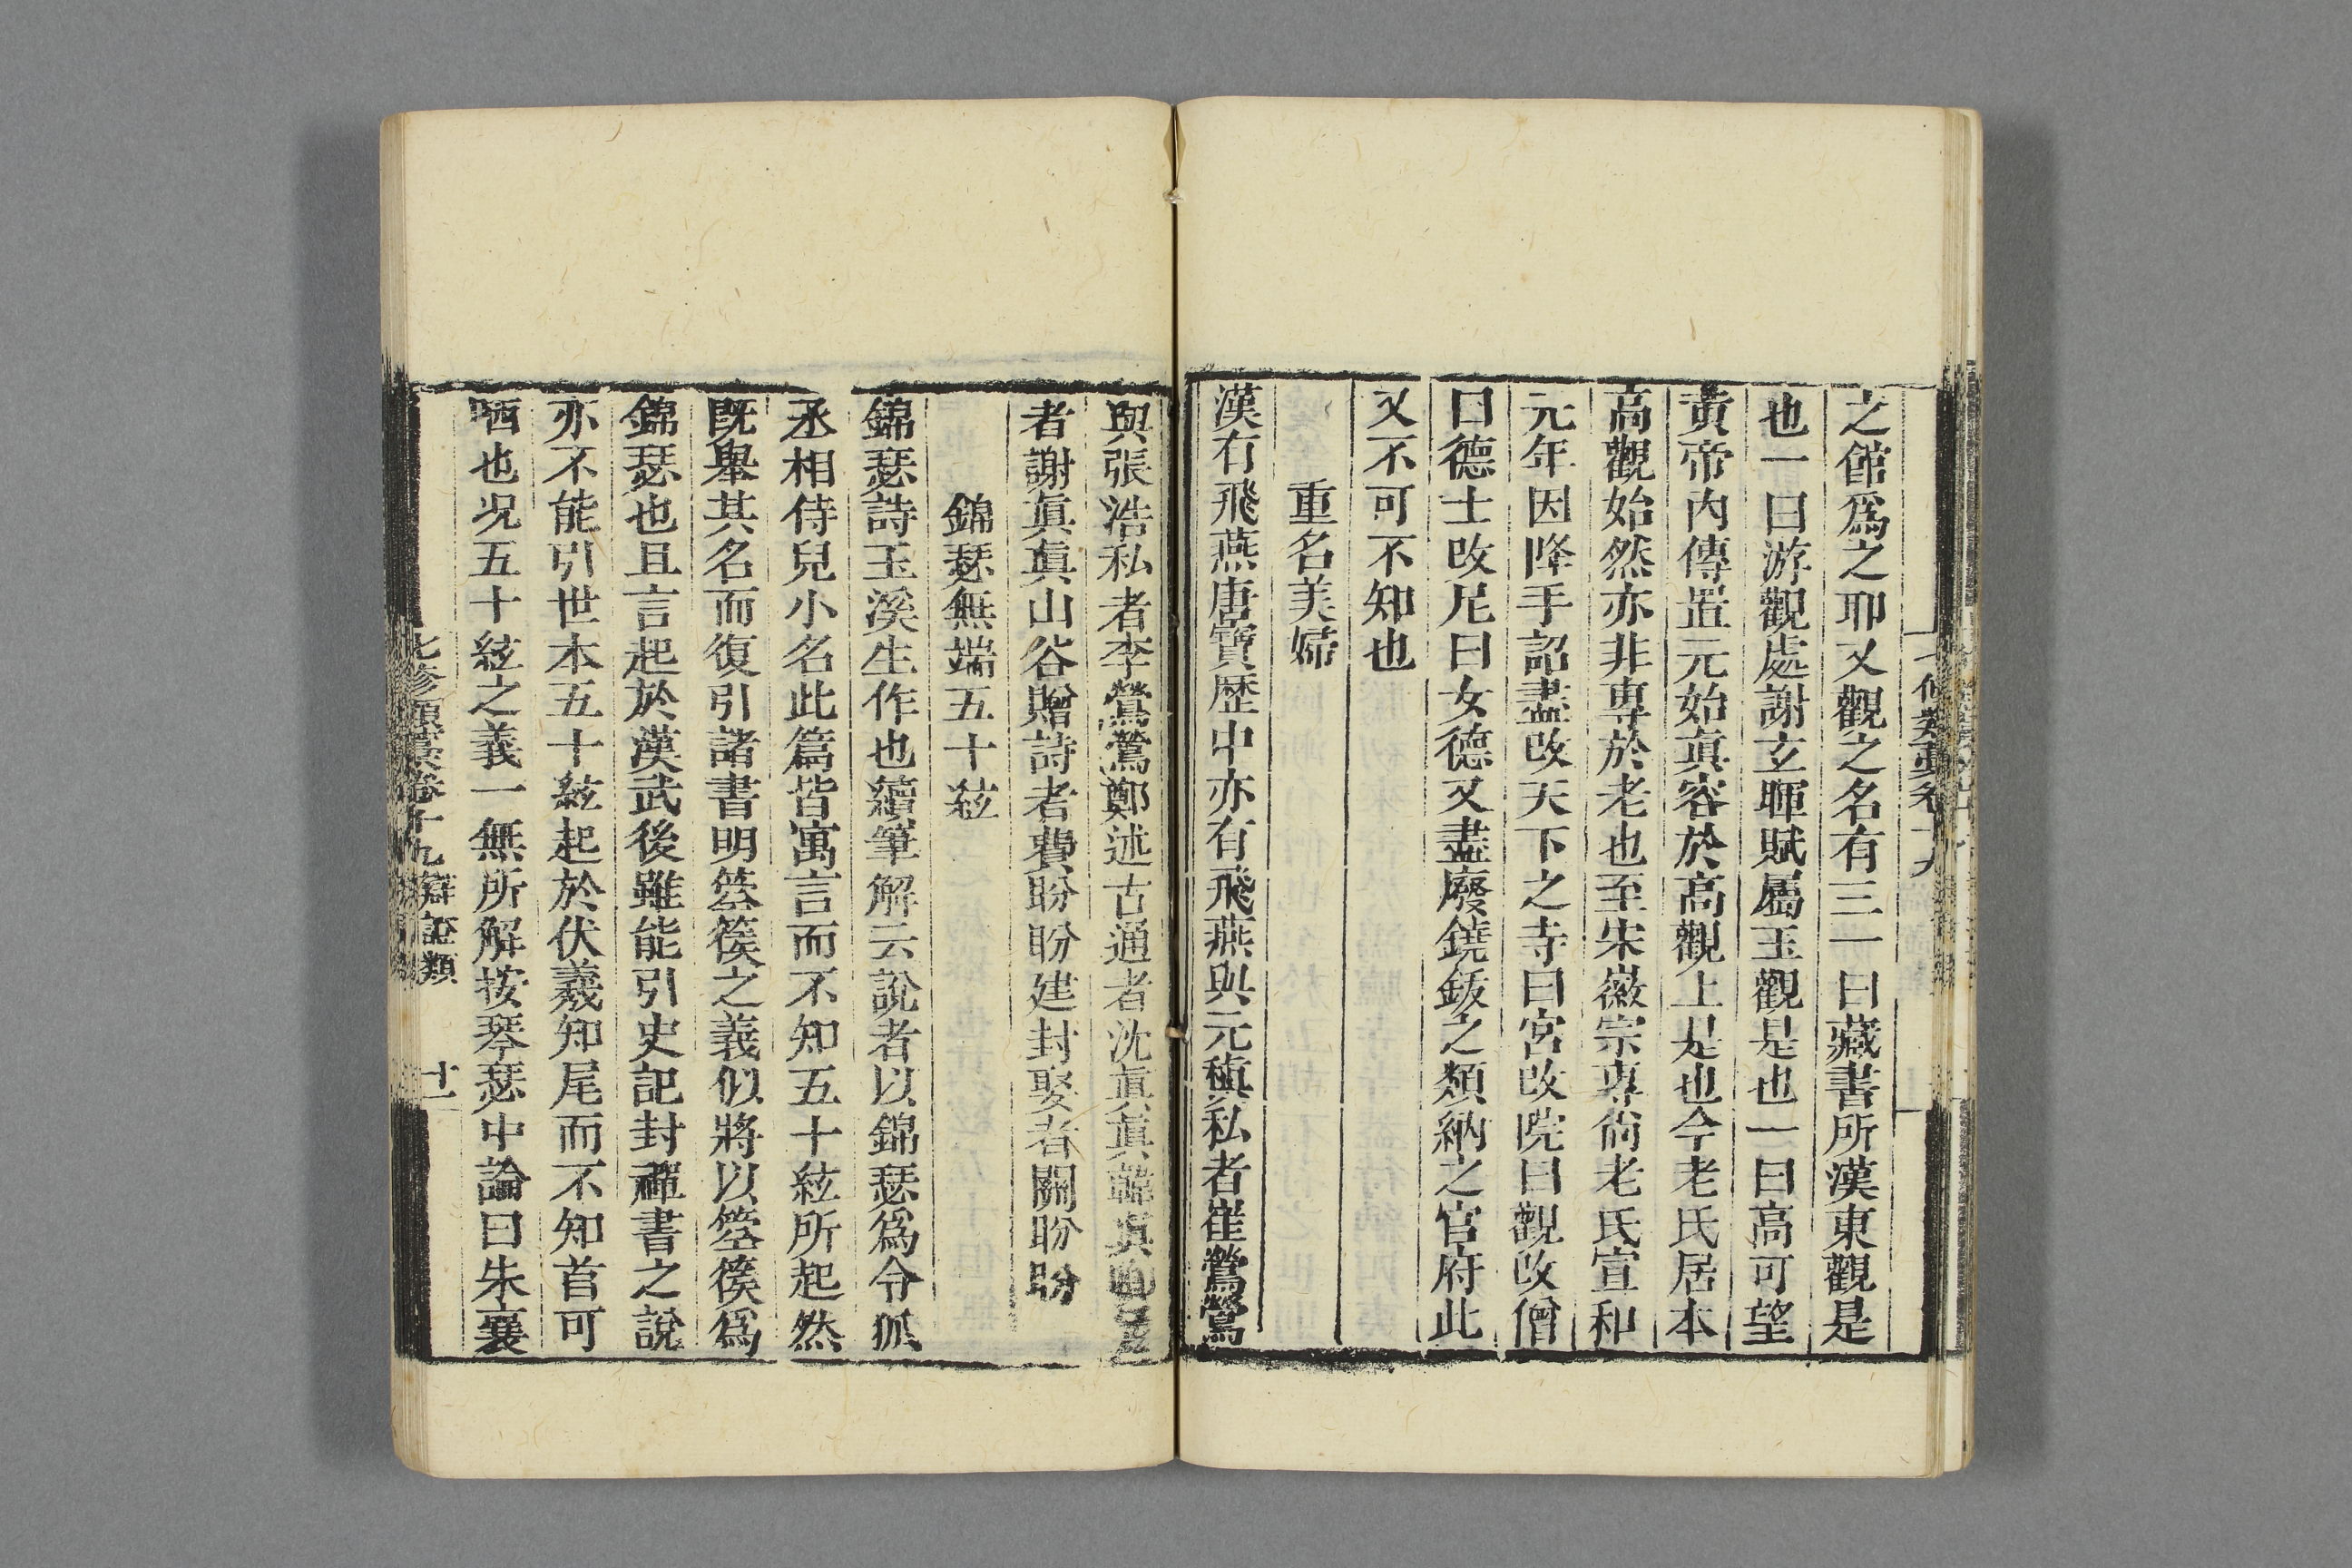 七修類藁卷十九
之館爲之耶又觀之名有三一曰藏書所漢東觀是
也一曰游觀處謝玄暉賦屬玉觀是也一曰高可望
黃帝內傳置元始眞容於高觀上是也今老氏居本
高觀始然亦非專於老也至宋徽宗專尙老氏宣和
元年因降手詔盡改天下之寺曰宮改院曰觀改僧
曰德士改尼曰女德又盡廢鐃鈸之類納之官府此
又不可不知也
重名美婦
漢有飛燕唐寶歷中亦有飛燕與元稹私者崔鶯鶯
與張浩私者李鶯鶯鄭述古通者沈眞眞韓眞
者謝眞眞山谷贈詩者費盼盼建封娶者關盼盼
錦瑟無端五十絃
錦瑟詩玉溪生作也續筆解云說者以錦瑟爲令狐
丞相侍兒小名此篇皆寓言而不知五十絃所起然
旣舉其名而復引諸書明箜篌之義似將以箜篌爲
錦瑟也且言起於漢武後雖能引史記封禪書之說
亦不能引世本五十絃起於伏羲知尾而不知首可
哂也况五十絃之義一無所解按琴瑟中論曰朱襄
七修類藁卷十九 辯證類 十一